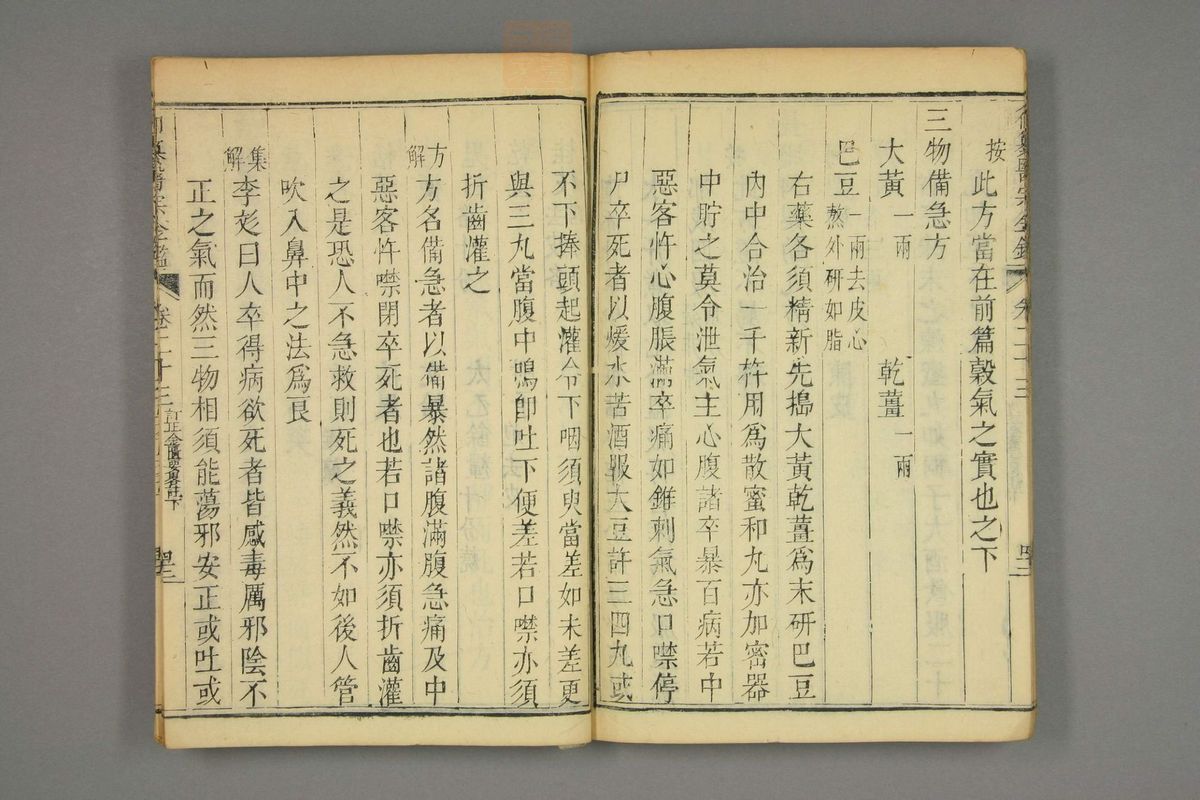 按此方當在前篇穀氣之實也之下
三物備急方
大黃一兩　乾薑一兩
巴豆一兩去皮心熬外研如脂
右藥各須精新先搗大黃乾薑爲末研巴豆
內中合治一千杵用爲散蜜和丸亦加密器
中貯之莫令泄氣主心腹諸卒暴百病若中
惡客忤心腹脹滿卒痛如錐刺氣急口噤停
尸卒死者以煖水苦酒服大豆許三四丸或
不下捧頭起灌令下咽須臾當差如未差更
與三丸當腹中鳴卽吐下便差若口噤亦須
折齒灌之
方解方名備急者以備暴然諸腹滿腹急痛及中
惡客忤噤閉卒死者也若口噤亦須折齒灌
之是恐人不急救則死之義然不如後人管
吹入鼻中之法爲良
集解李彣曰人卒得病欲死者皆感毒厲邪陰不
正之氣而然三物相須能蕩邪安正或吐或
御纂醫宗金鑑　卷二十三　訂正金匱要畧註下